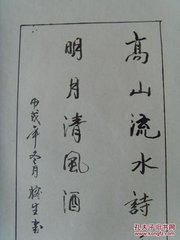 高山流水詩
明月清風酒
戌年冬月 生書